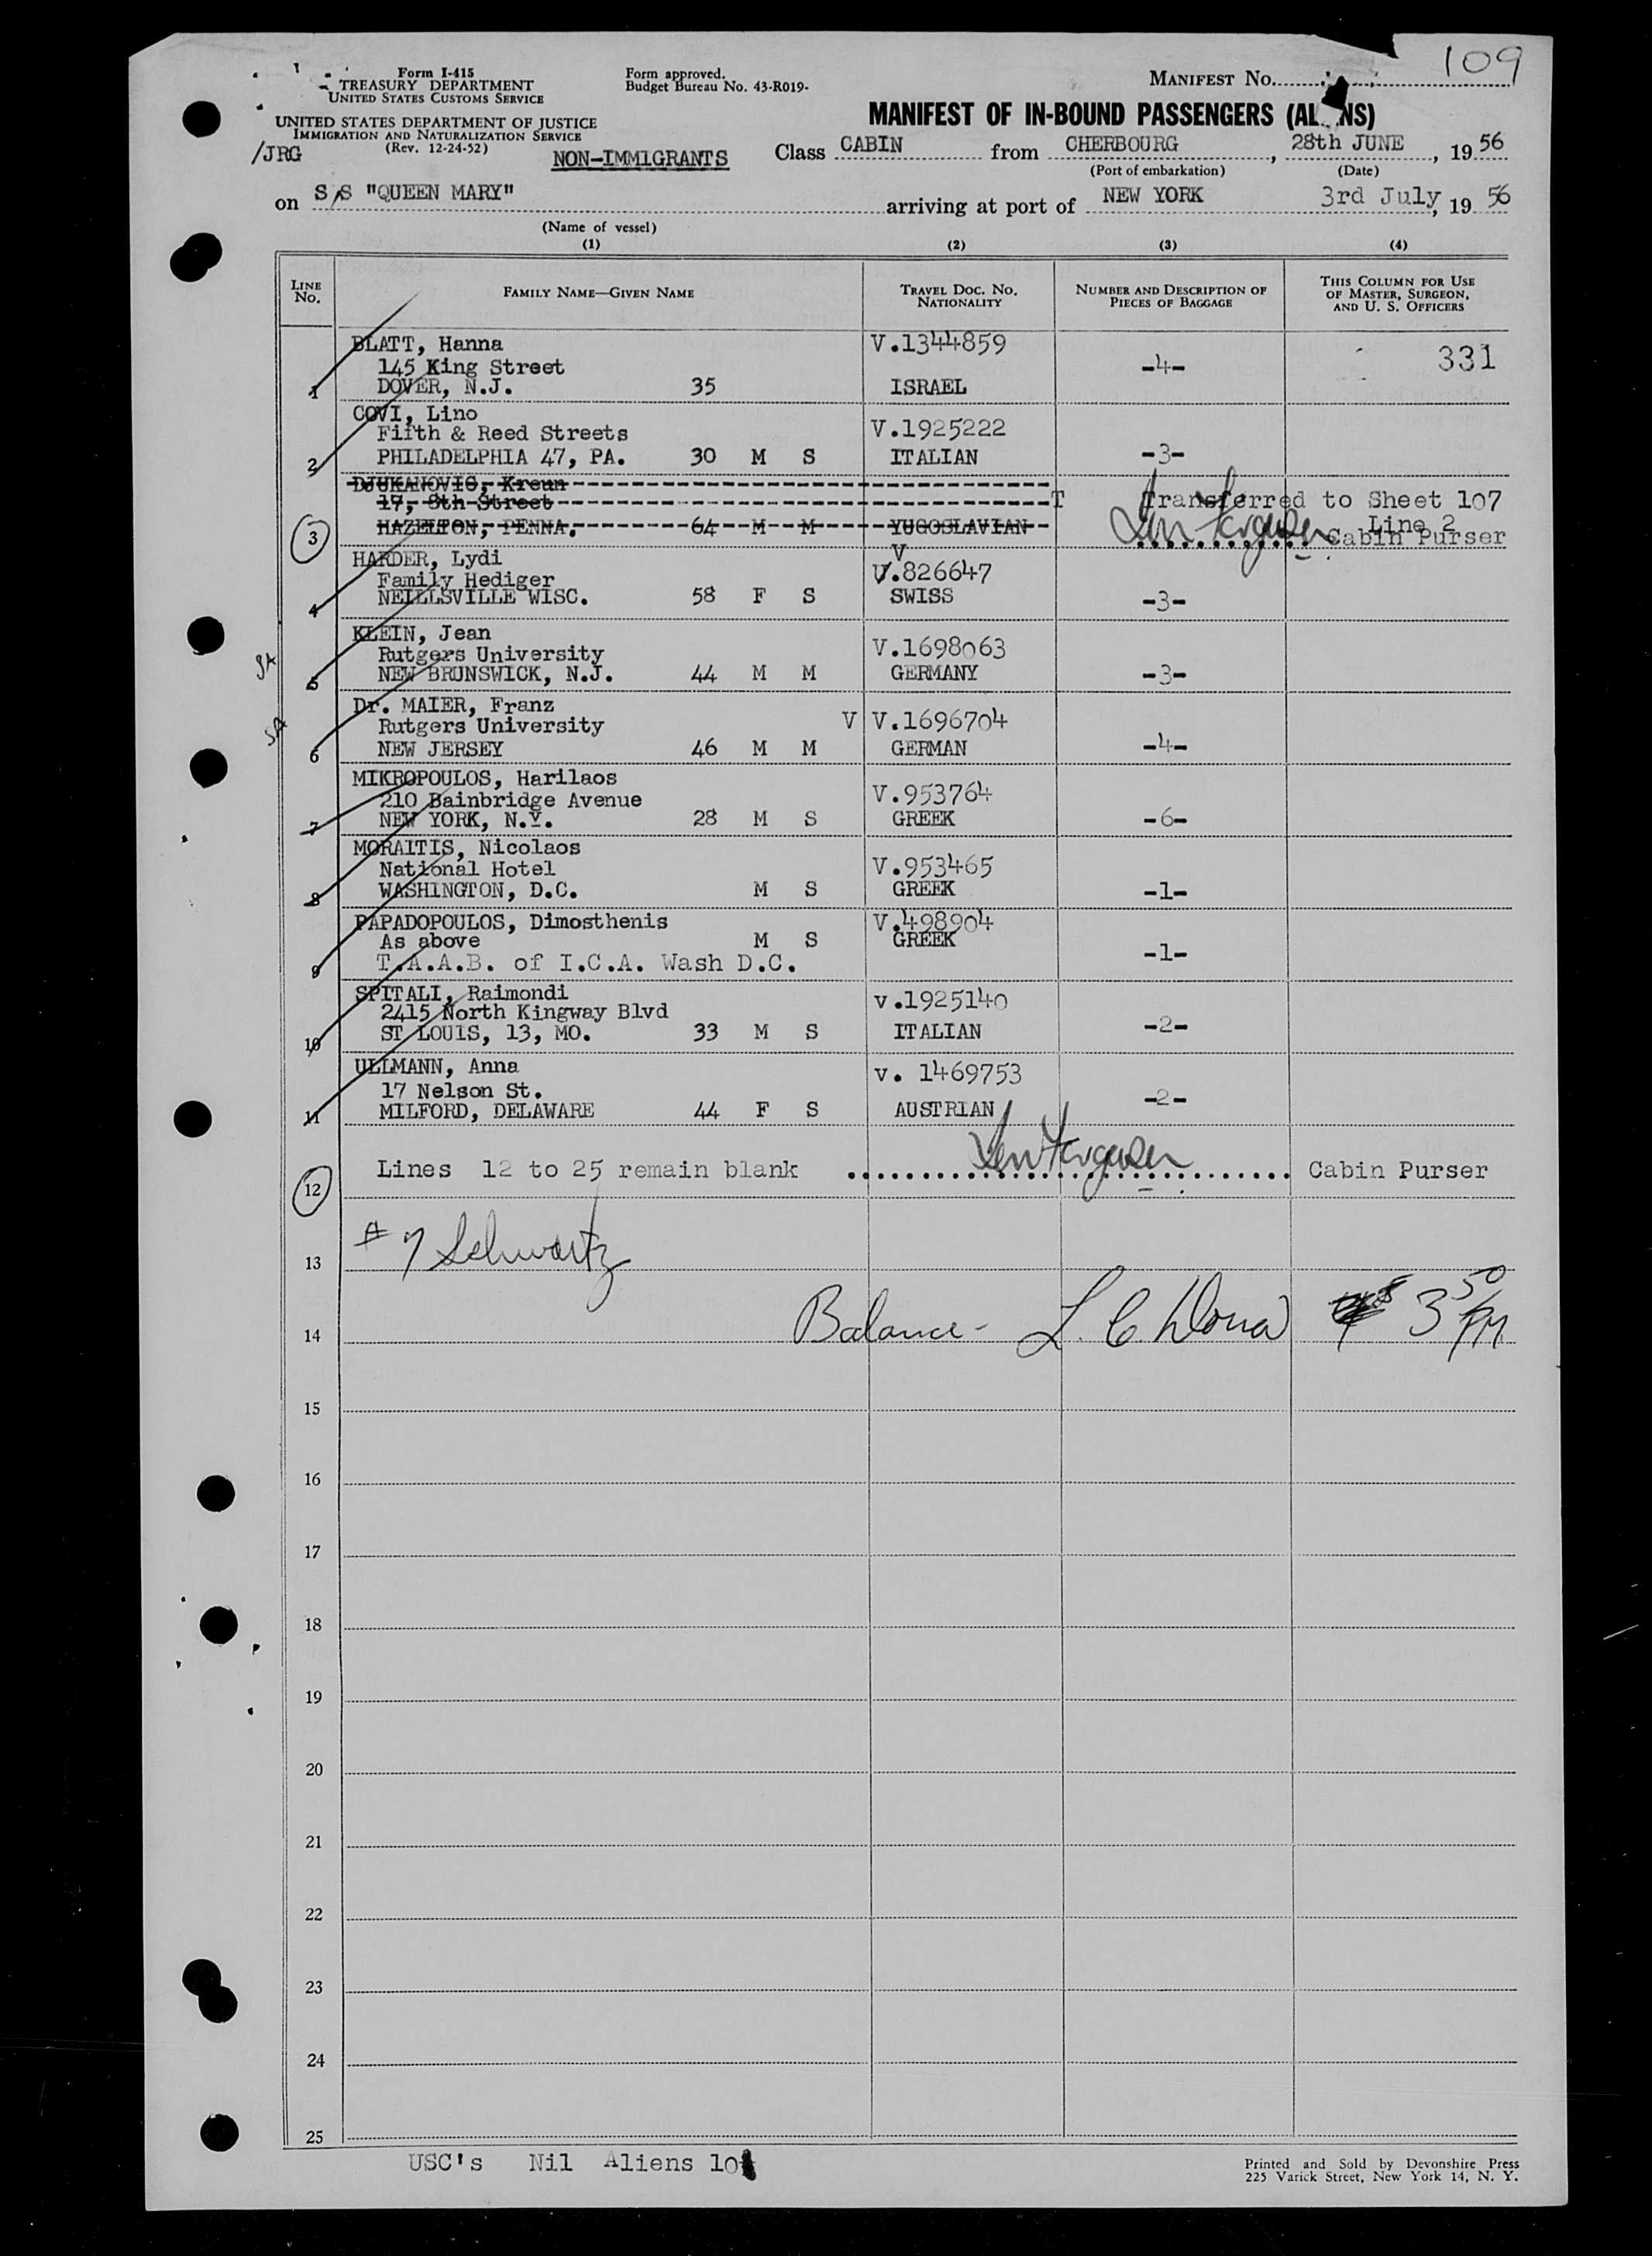 109
Form I-415
TREASURY DEPARTMENT
UNITED STATES CUSTOMS SERVICE
UNITED STATES DEPARTMENT OF JUSTICE
IMMIGRATION AND NATURALIZATION SERVICE
(Rev. 12-24-52)
Form approved.
Budget Bureau No. 43-R019-
MANIFEST NO.
MANIFEST OF IN-BOUND PASSENGERS (AL NS)
/JRG
NON-IMMIGRANTS
Class CABIN from CHERBOURG, 28th JUNE, 1956
(Port of embarkation) (Date)
on S/S "QUEEN MARY" arriving at port of NEW YORK 3rd July, 1956
(Name of vessel)
(1) (2) (3) (4)
LINE NO. FAMILY NAME—GIVEN NAME TRAVEL DOC. NO. NATIONALITY NUMBER AND DESCRIPTION OF PIECES OF BAGGAGE THIS COLUMN FOR USE OF MASTER, SURGEON, AND U. S. OFFICERS
BLATT, Hanna V.1344859
145 King Street -4- 331
1 DOVER, N.J. 35 ISRAEL
COVI, Lino
Fifth & Reed Streets V.1925222
2 PHILADELPHIA 47, PA. 30 M S ITALIAN -3-
DJUKANOVIC, Kreun
17, 8th Street T Transferred to Sheet 107
Line 2
3 HAZELTON, PENNA. 64 M M YUGOSLAVIAN Cabin Purser
HARDER, Lydi V
Family Hediger V.826647
4 NEILLSVILLE WISC. 58 F S SWISS -3-
KLEIN, Jean
SA Rutgers University V.1698063
5 NEW BRUNSWICK, N.J. 44 M M GERMANY -3-
Dr. MAIER, Franz
SA Rutgers University V V.1696704
6 NEW JERSEY 46 M M GERMAN -4-
MIKROPOULOS, Harilaos
210 Bainbridge Avenue V.953764
7 NEW YORK, N.Y. 28 M S GREEK -6-
MORAITIS, Nicolaos
National Hotel V.953465
8 WASHINGTON, D.C. M S GREEK -1-
PAPADOPOULOS, Dimosthenis V.498904
As above M S GREEK
9 T.A.A.B. of I.C.A. Wash D.C. -1-
SPITALI, Raimondi v.1925140
2415 North Kingway Blvd
10 ST LOUIS, 13, MO. 33 M S ITALIAN -2-
ULLMANN, Anna v. 1469753
17 Nelson St.
11 MILFORD, DELAWARE 44 F S AUSTRIAN -2-
Lines 12 to 25 remain blank Cabin Purser
12
# 7 Schwartz
13
14 Balance - L. C. 3 50 PM
15
16
17
18
19
20
21
22
23
24
25
USC's Nil Aliens 10
Printed and Sold by Devonshire Press
225 Varick Street, New York 14, N. Y.